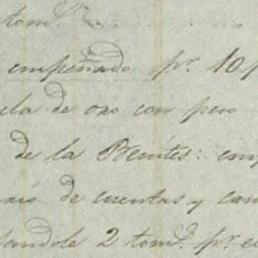 tom.s
empeñado pr. 10 p
ela de oro con peso
de la Benites: em
ario de cuentas y can
andole 2 tom.s pr. c